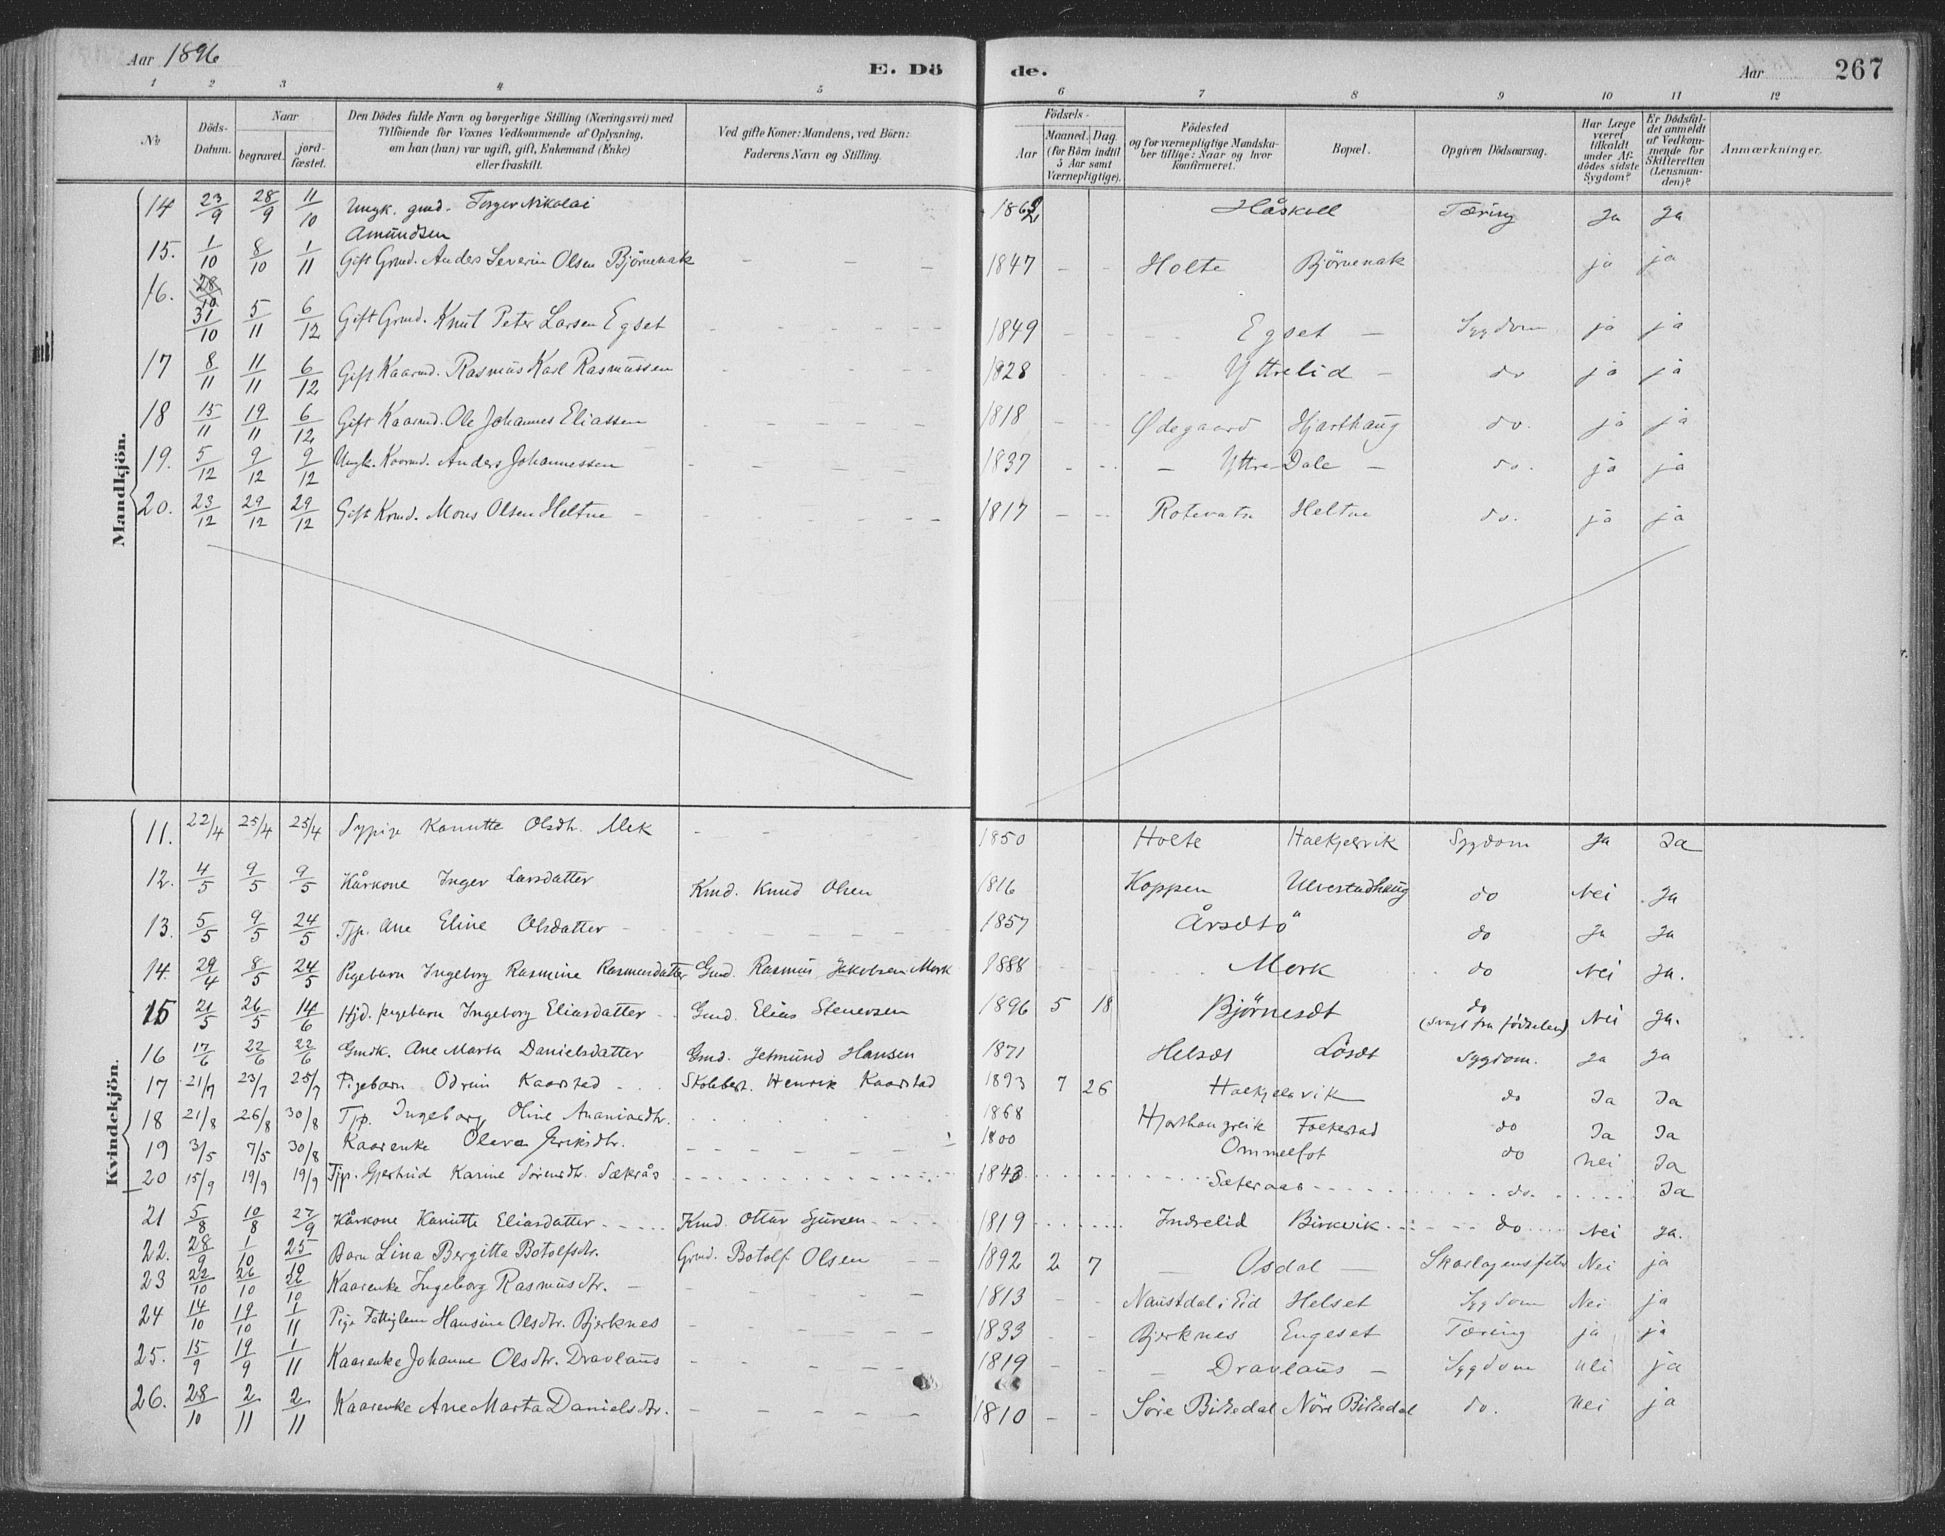 Aar 1896
E. Dö de.
Aar 267
1 2 3 4 5 6 7 8 9 10 11 12
No.
Döds-Datum.
Naar
begravet.
jord-fæstet.
Den Dödes fulde Navn og borgerlige Stilling (Næringsvei) med
Tilföiende for Voxnes Vedkommende af Oplysning,
om han (hun) var ugift, gift, Enkemand (Enke)
eller fraskilt.
Ved gifte Koner: Mandens, ved Börn:
Faderens Navn og Stilling.
Födsels-
Aar
Maaned. Dag.
(for Börn indtil
5 Aar samt
Værnepligtige).
Födested
og for værnepligtige Mandska-
ber tillige: Naar og hvor
konfirmeret.
Bopæl.
Opgiven Dödsaarsag.
Har Læge
været
tilkaldt
under Af-
dödes sidste
Sygdom?
Er Dödsfal-
det anmeldt
af Vedkom-
mende for
Skifteretten
(Lensman-
den)?
Anmærkninger.
Mandkjön.
14 23/9 28/9 11/10 Ungk. gmd. Torger Nikolai Amundsen Håskoll Tæring Ja Ja
15. 1/10 8/10 1/11 Gift Grmd. Anders Severin Olsen Björnenak - - - 1847 - - Holte Björnenak ja ja
16. 28/10
31/10 5/11 6/12 Gift Grmd. Knut Peter Larsen Egset - - - 1849 - - Egset - Sygdom ja ja
17 8/11 11/11 6/12 Gift Kaarmd. Rasmus Karl Rasmussen - - - 1828 - - Yttrelid - do ja ja
18 15/11 19/11 6/12 Gift Kaarmd. Ole Johannes Eliassen - - - 1818 - - Ødegaard Hjorthaug do. ja ja
19. 5/12 9/12 9/12 Ungk. Kaarmd. Anders Johannessen - - - 1837 - - - Yttre Dale - do. ja ja
20. 23/12 29/12 29/12 Gift Krmd. Mons Olsen Heltne - - - 1817 - - Rotevatn Heltne do. ja ja
Kvindekjön.
11. 22/4 25/4 25/4 Sypige Kanutte Olsdtr. Mek - - - 1850 Holte Haekjelsvik Sygdom Ja Ja
12. 4/5 9/5 9/5 Kårkone Inger Larsdatter Kmd. Knud Olsen 1816 Koppen Ulvestadhaug do Nei Ja
13. 5/5 9/5 24/5 Tjp. Ane Eline Olsdatter - - - 1857 Årsdtö do Ja Ja
14. 29/4 8/5 24/5 Pigebarn Ingeborg Rasmine Rasmusdatter Gmd. Rasmus Jakobsen Mork 1888 Mork do Nei Ja.
15 21/5 26/5 14/6 Hjd. pigebarn Ingeborg Eliasdatter - Gmd. Elias Stenersen 1896 5 18 Björnesdt do (svagt fra fødselen) Nei Ja.
16 17/6 22/6 22/6 Gmdk. Ane Marta Danielsdatter Gmd. Jetmund Hansen 1871 Helsdt Løsdt Sygdom. Ja Ja
17 21/7 23/7 25/7 Pigebarn Odrun Kaarstad Skolebest. Henrik Kaarstad 1893 7 26 Haekjelsvik do Ja Ja
18 21/8 26/8 30/8 Tjp. Ingeborg Oline Ananiasdtr. 1868 Hjorthaugreik Folkestad do Ja Ja
19 3/5 7/5 30/8 Kaarenke Oleva Jeriksdtr. - - - 1800 Ommelfot do Nei Ja
20 15/9 19/9 19/9 Tjp. Gjertrud Karine Sörensdtr. Sæterås - - - 1843 Sæteraas do. Ja
21 5/8 10/8 27/9 Kårkone Kanutte Eliasdatter Kmd. Ottar Sjursen 1819 Indrelid Birkvik do Nei Ja.
22. 28/9 1/10 25/10 Barn Lina Bergitta Botolfsdtr. Grmd. Botolf Olsen - - 1892 2 7 - Osdal - Skarlagensfeber Nei ja
23 22/10 26/10 26/10 Kaarenke Ingeborg Rasmusdtr. - - - 1813 - - Naustdal i Eid Helset Sygdom Nei ja
24 14/10 19/10 1/11 Pige Fattiglem Hansine Olsdtr. Bjerknes - - - 1833 - - Bjerknes Engeset Tæring ja ja
25. 15/9 19/9 1/11 Kaarenke Johanne Olsdtr. Dravlaus - - - 1819 - - - Dravlaus - Sygdom nei ja
26. 28/10 2/11 2/11 Kaarenke Ane Marta Danielsdtr. - - - 1810 - - Söre Birkedal Nöre Birkedal do. nei ja